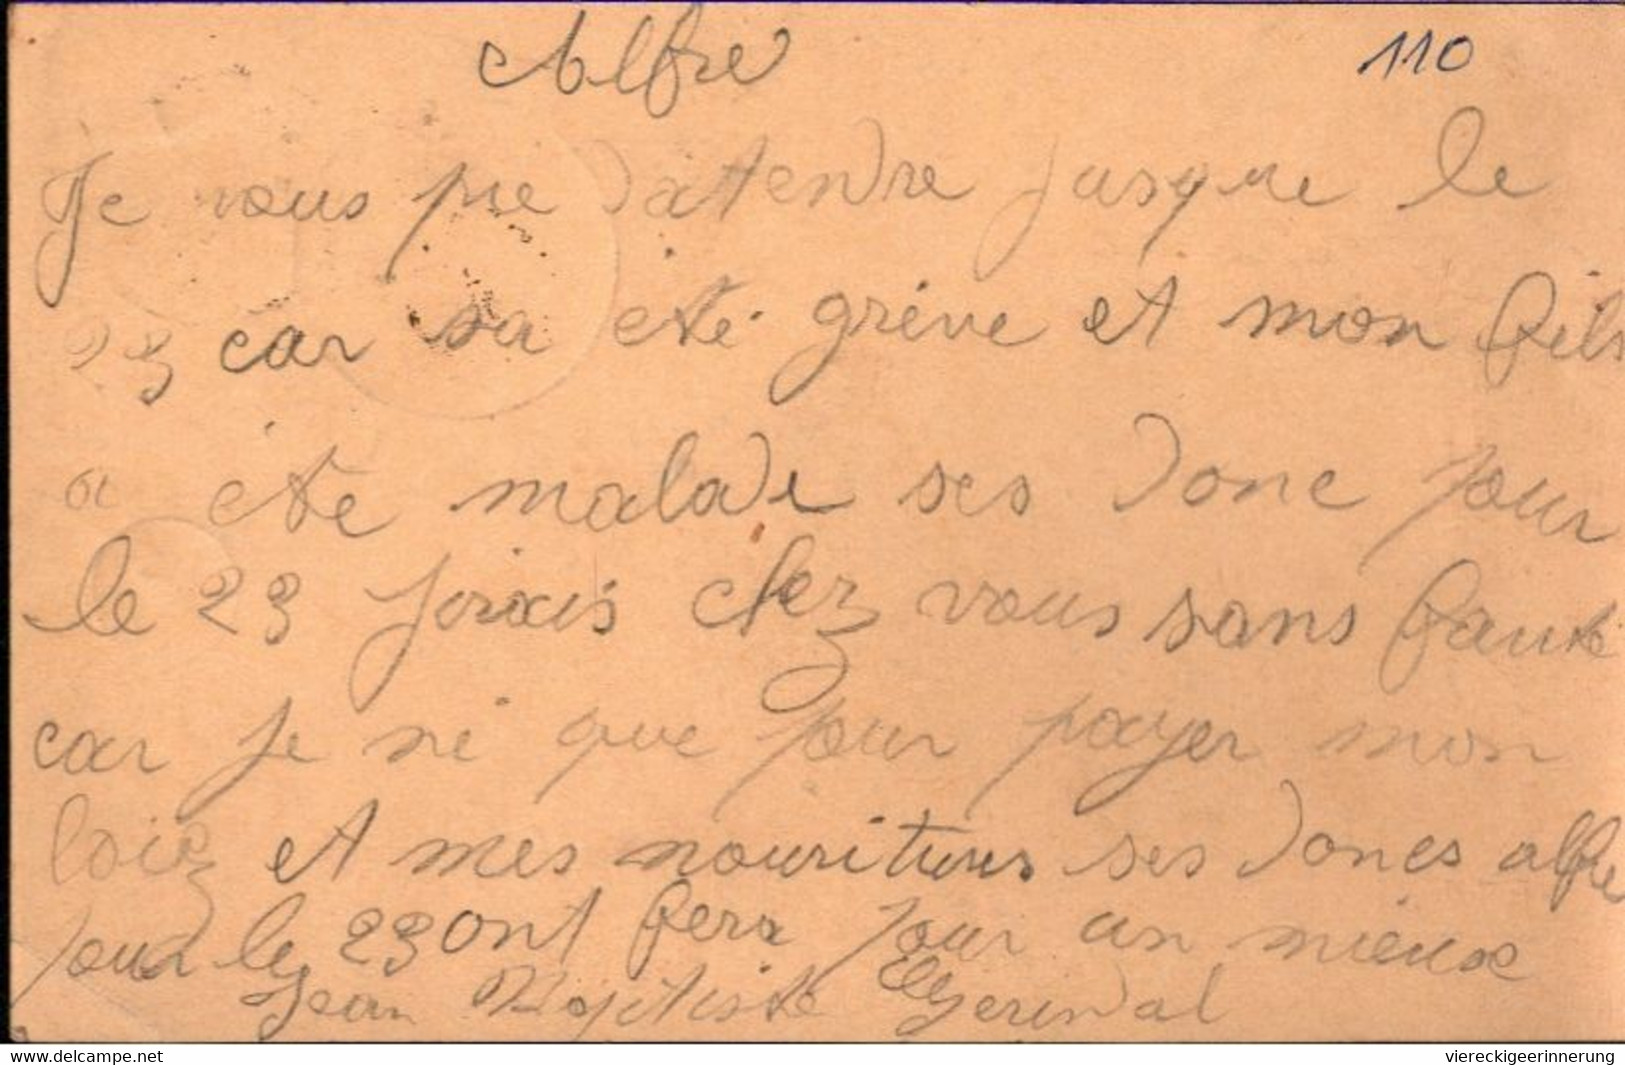 Alfre
110
Je vous prie datendre jusque le
23 car sa ete grève et mon fils
a ete malade ses donc pour
le 23 jirais chez vous sans faute
car je ne que pour payer mon
loiez et mes nouritures ses doncs alfre
pour le 23 ont fera pour un mieux
Jean Baptiste
www.delcampe.net
viereckigeerinnerung